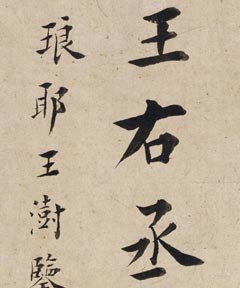 王右丞
琅耶王澍鑒